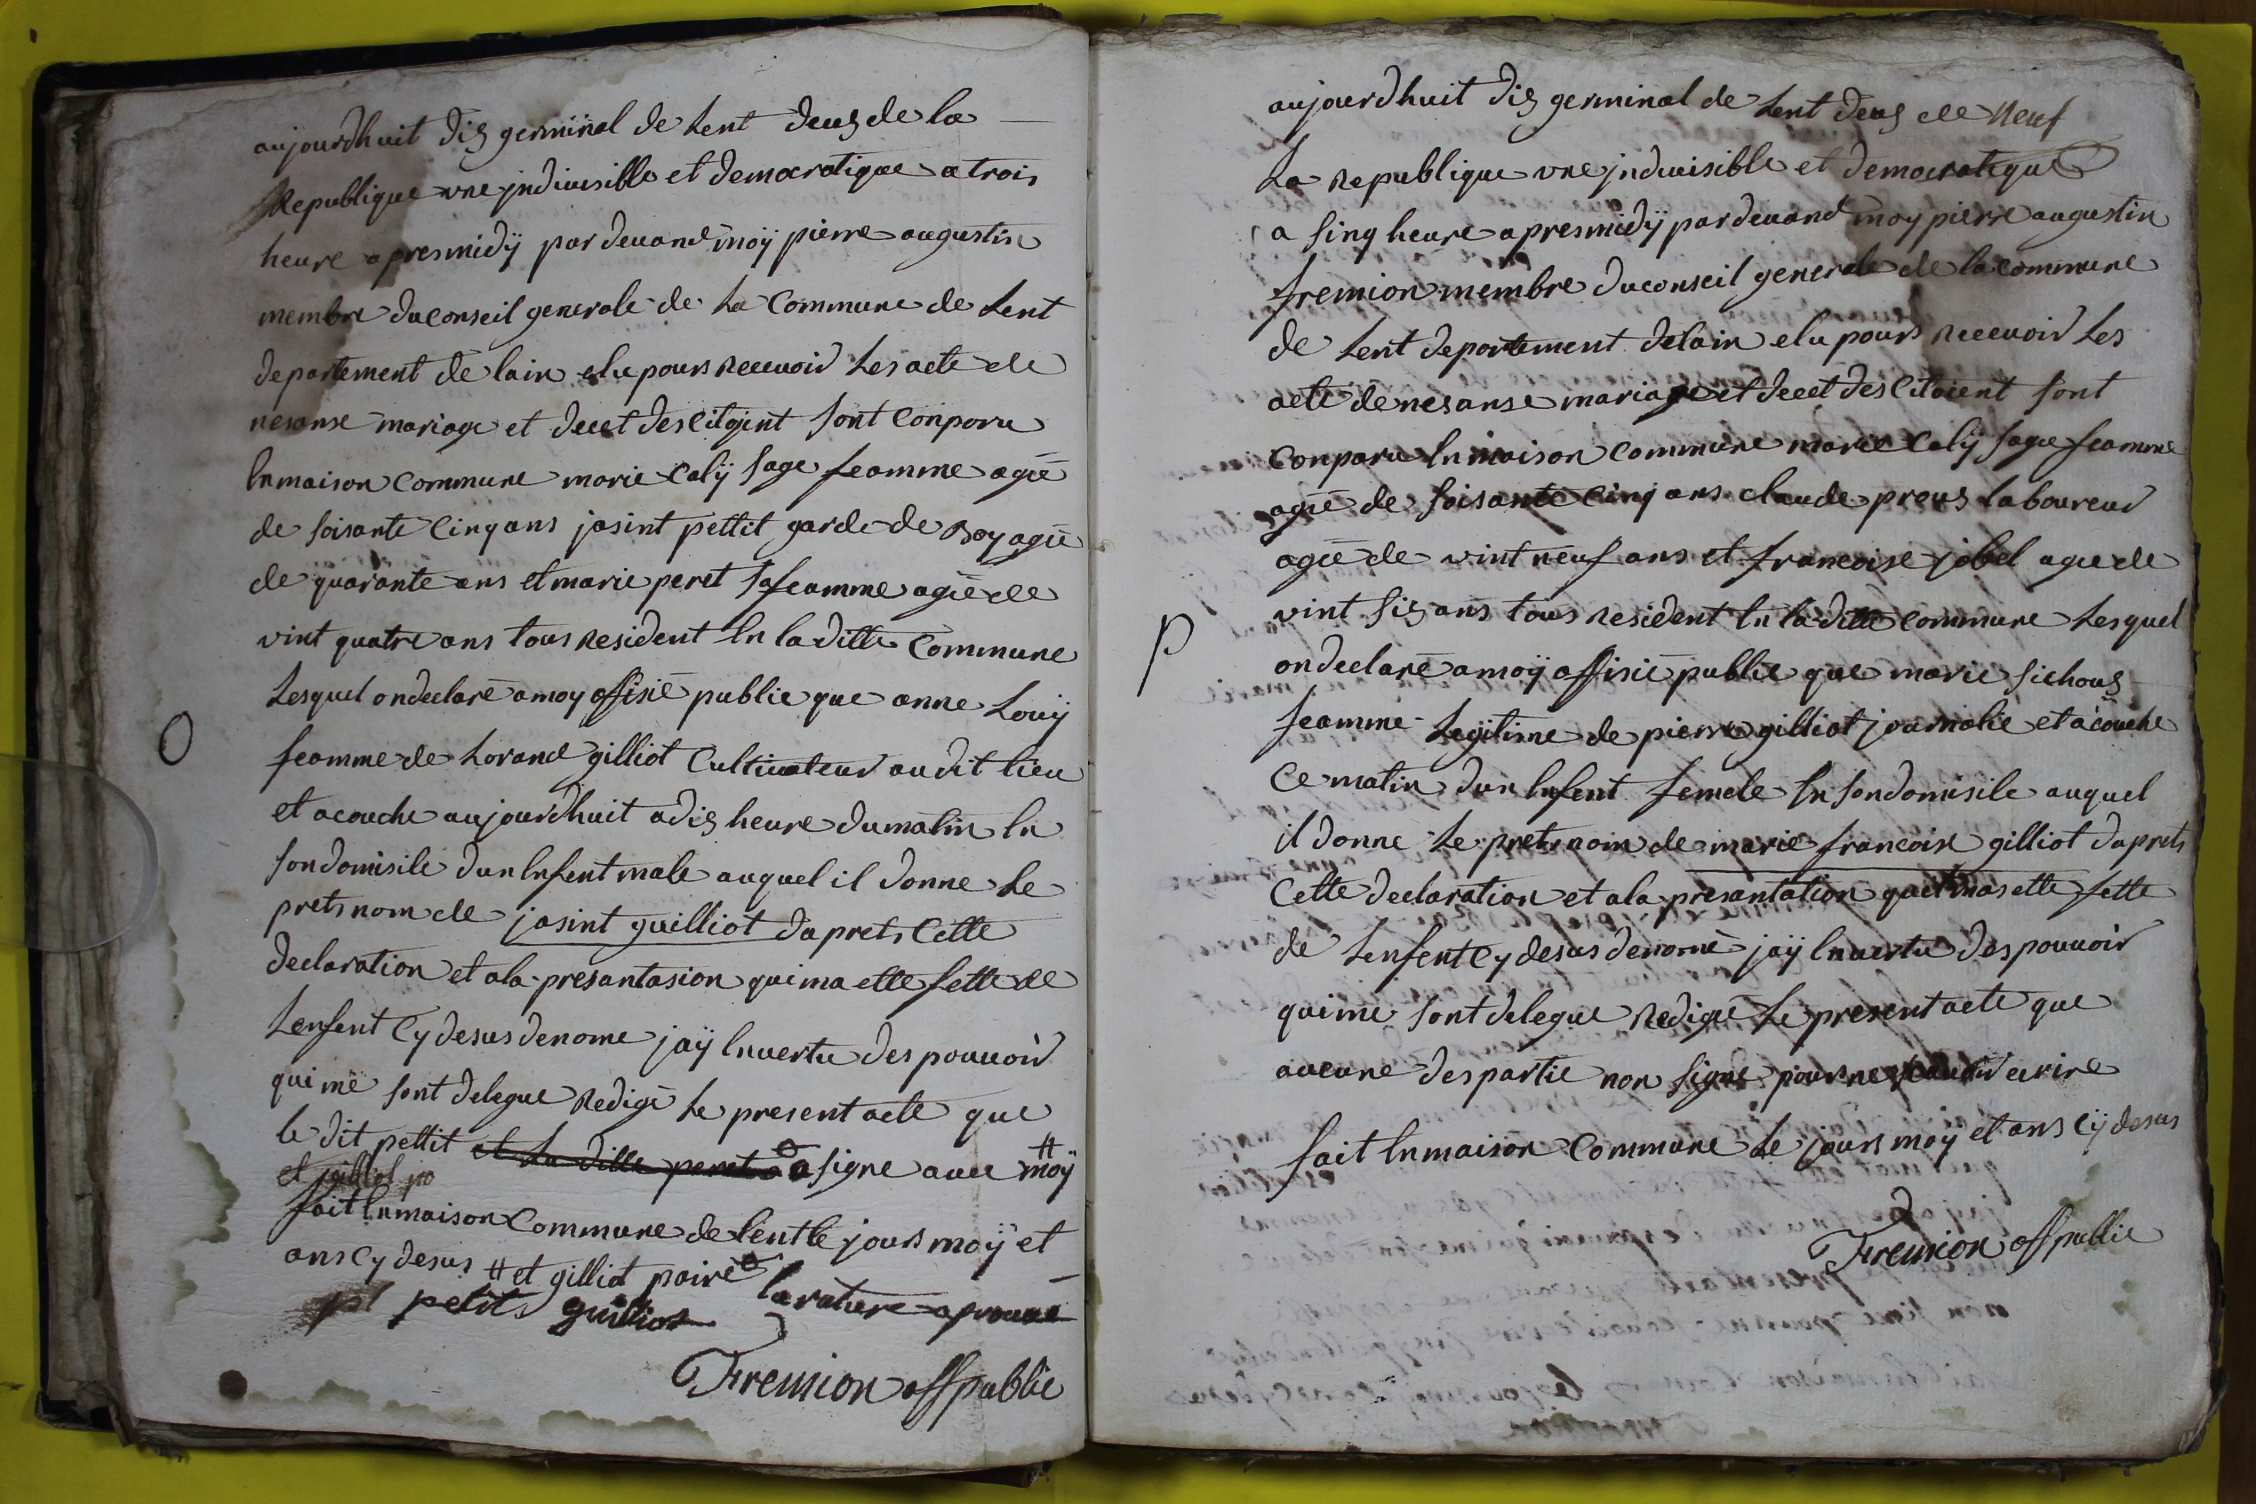 aujourdhuit dix germinal de Lent deux de la
Republique une jndiuisible et democratique a trois
heure apresmidÿ pardeuand moÿ pierre augustin
membre du conseil generale de La Commune de Lent
departement de lain elu pours Receuoir Les acte de
nesanse mariage et decet des Citoyent sont Conparu
En maison Commune marie Calÿ sage feamme agee
de soisante Cinq ans jasint pettit garde de Boy agee
de quarante ans et marie peret sa feamme agee de
vint quatre ans tous Resident En la ditte Commune
Lesquel on declaré a moy offisié public que anne Louÿ
feamme de Lorand gilliot Cultiuateur au dit lieu
et acouche aujourdhuit a dix heure du matin En
O
son domisile dun Enfent male auquel il donne Le
prets nom de jasint guilliot daprets Cette
declaration et ala presantasion qui ma ette fette de
Lenfent Cy desus denome jaÿ En uertu des pouuoir
qui me sont delegue Redigé Le present acte que
le dit pettit et La ditte peret a signe auec # moÿ
et gilliot
fait En maison Commune de Lent le jours moÿ et
ans Cy desus # et gilliot paire la rature aprouué
petit guilliot
Fremion off public
Neuf
aujourdhuit dix germinal de Lent deux de
La Republique vne jndiuisible et democratique
a sinq heure apresmidÿ pardeuand moy pierre augustin
fremion membre du conseil generale de la commune
de Lent departement de lain elu pours Receuoir Les
acte de nesanse mariage et decet des Citoient sont
Conparu En maison Commune marie Calÿ sage feamme
agee de soisante Cinq ans claude preux laboureur
agee de vint neuf ans et francoise jobel agee de
vint six ans tous Resident En la ditte Commune Lesquel
P
on declaré a moÿ offisié public que marie sichoux
feamme Legitime de pierre gilliot journalie et acouche
Ce matin dun Enfent femele En son domisile auquel
il donne Le prets nom de marie francoise gilliot daprets
Cette declaration et ala presantation qui mas ette fette
de Lenfent Cy desus denomé jaÿ En uertu des pouuoir
qui me sont delegue Redigé Le present acte que
aucune des partie non signe pour ne sauoir ecrire
fait En maison Commune Le jours moy et ans Cÿ desus
Fremion off public